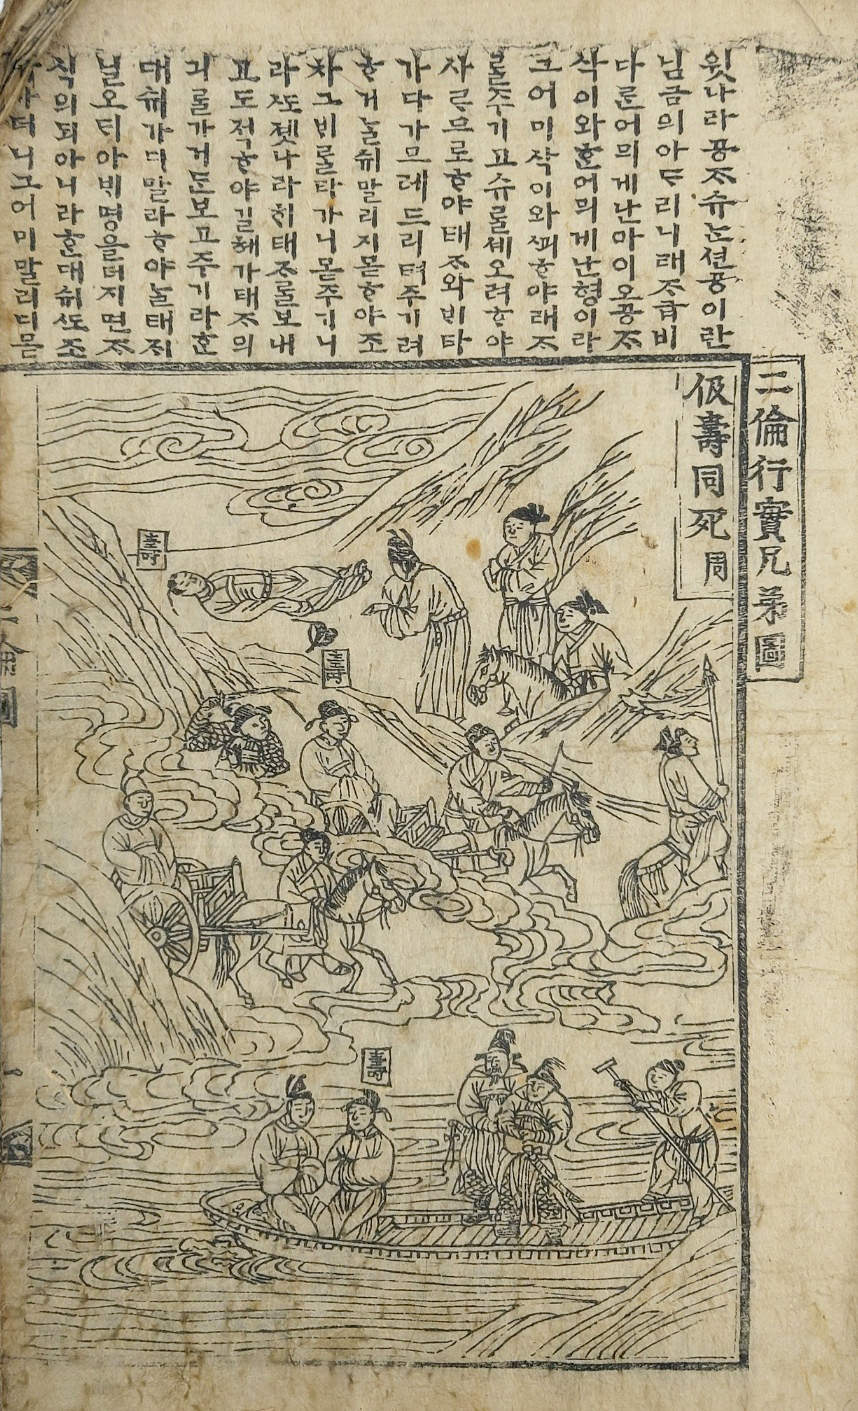 윗나라공ᄌᆞ슈ᄂᆞᆫ션공이란
님금의아ᄃᆞ리니태ᄌᆞ급비
다ᄅᆞᆫ어믜게난아이오공ᄌᆞ
삭이와ᄒᆞᆫ어믜게난형이라
그어미삭이와ᄭᅬᄒᆞ야태ᄌᆞ
ᄅᆞᆯ주기고슈ᄅᆞᆯ셰오려ᄒᆞ야
사ᄅᆞ므로ᄒᆞ야태ᄌᆞ와ᄇᆡ타
가다가므레드리텨주기려
ᄒᆞ거ᄂᆞᆯ쉬말리지몯ᄒᆞ야조
차그ᄇᆡᄅᆞᆯ타가니몯주기니
라ᄯᅩ졧나라ᄒᆡ태ᄌᆞᄅᆞᆯ보내
고도적ᄒᆞ야길헤가태ᄌᆞ의
긔ᄅᆞᆯ가거든보고주기라ᄒᆞᆫ
대쉬가디말라ᄒᆞ야ᄂᆞᆯ태ᄌᆡ
닐오ᄃᆡ아ᄇᆡ명을더지면ᄌᆞ
식의되아니라ᄒᆞᆫ대쉬ᄯᅩ조
가더니그어미말리디몯
二倫行實兄弟圖
伋壽同死 周
壽
壽
壽